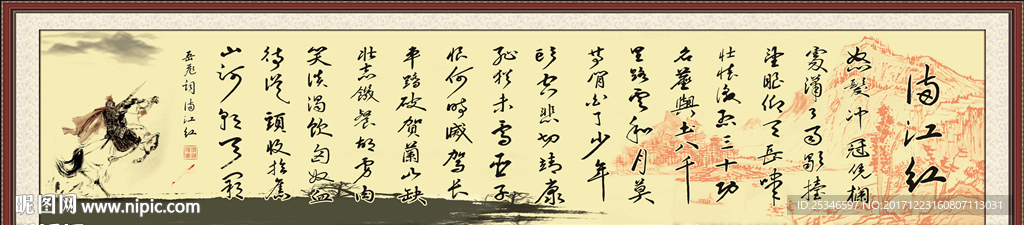 满江红
怒髮冲冠凭欄
處潇潇雨歇擡
望眼仰天長嘯
壯懷激烈三十功
名塵與土八千
里路雲和月莫
等閒白了少年
頭空悲切靖康
耻猶未雪臣子
恨何時滅駕長
車踏破賀蘭山缺
壮志饑餐胡虏肉
笑谈渴飲匈奴血
待從頭收拾舊
山河朝天闕
岳飛词满江红
昵图网 www.nipic.com
ID:25346597 NO:20171223160807113031